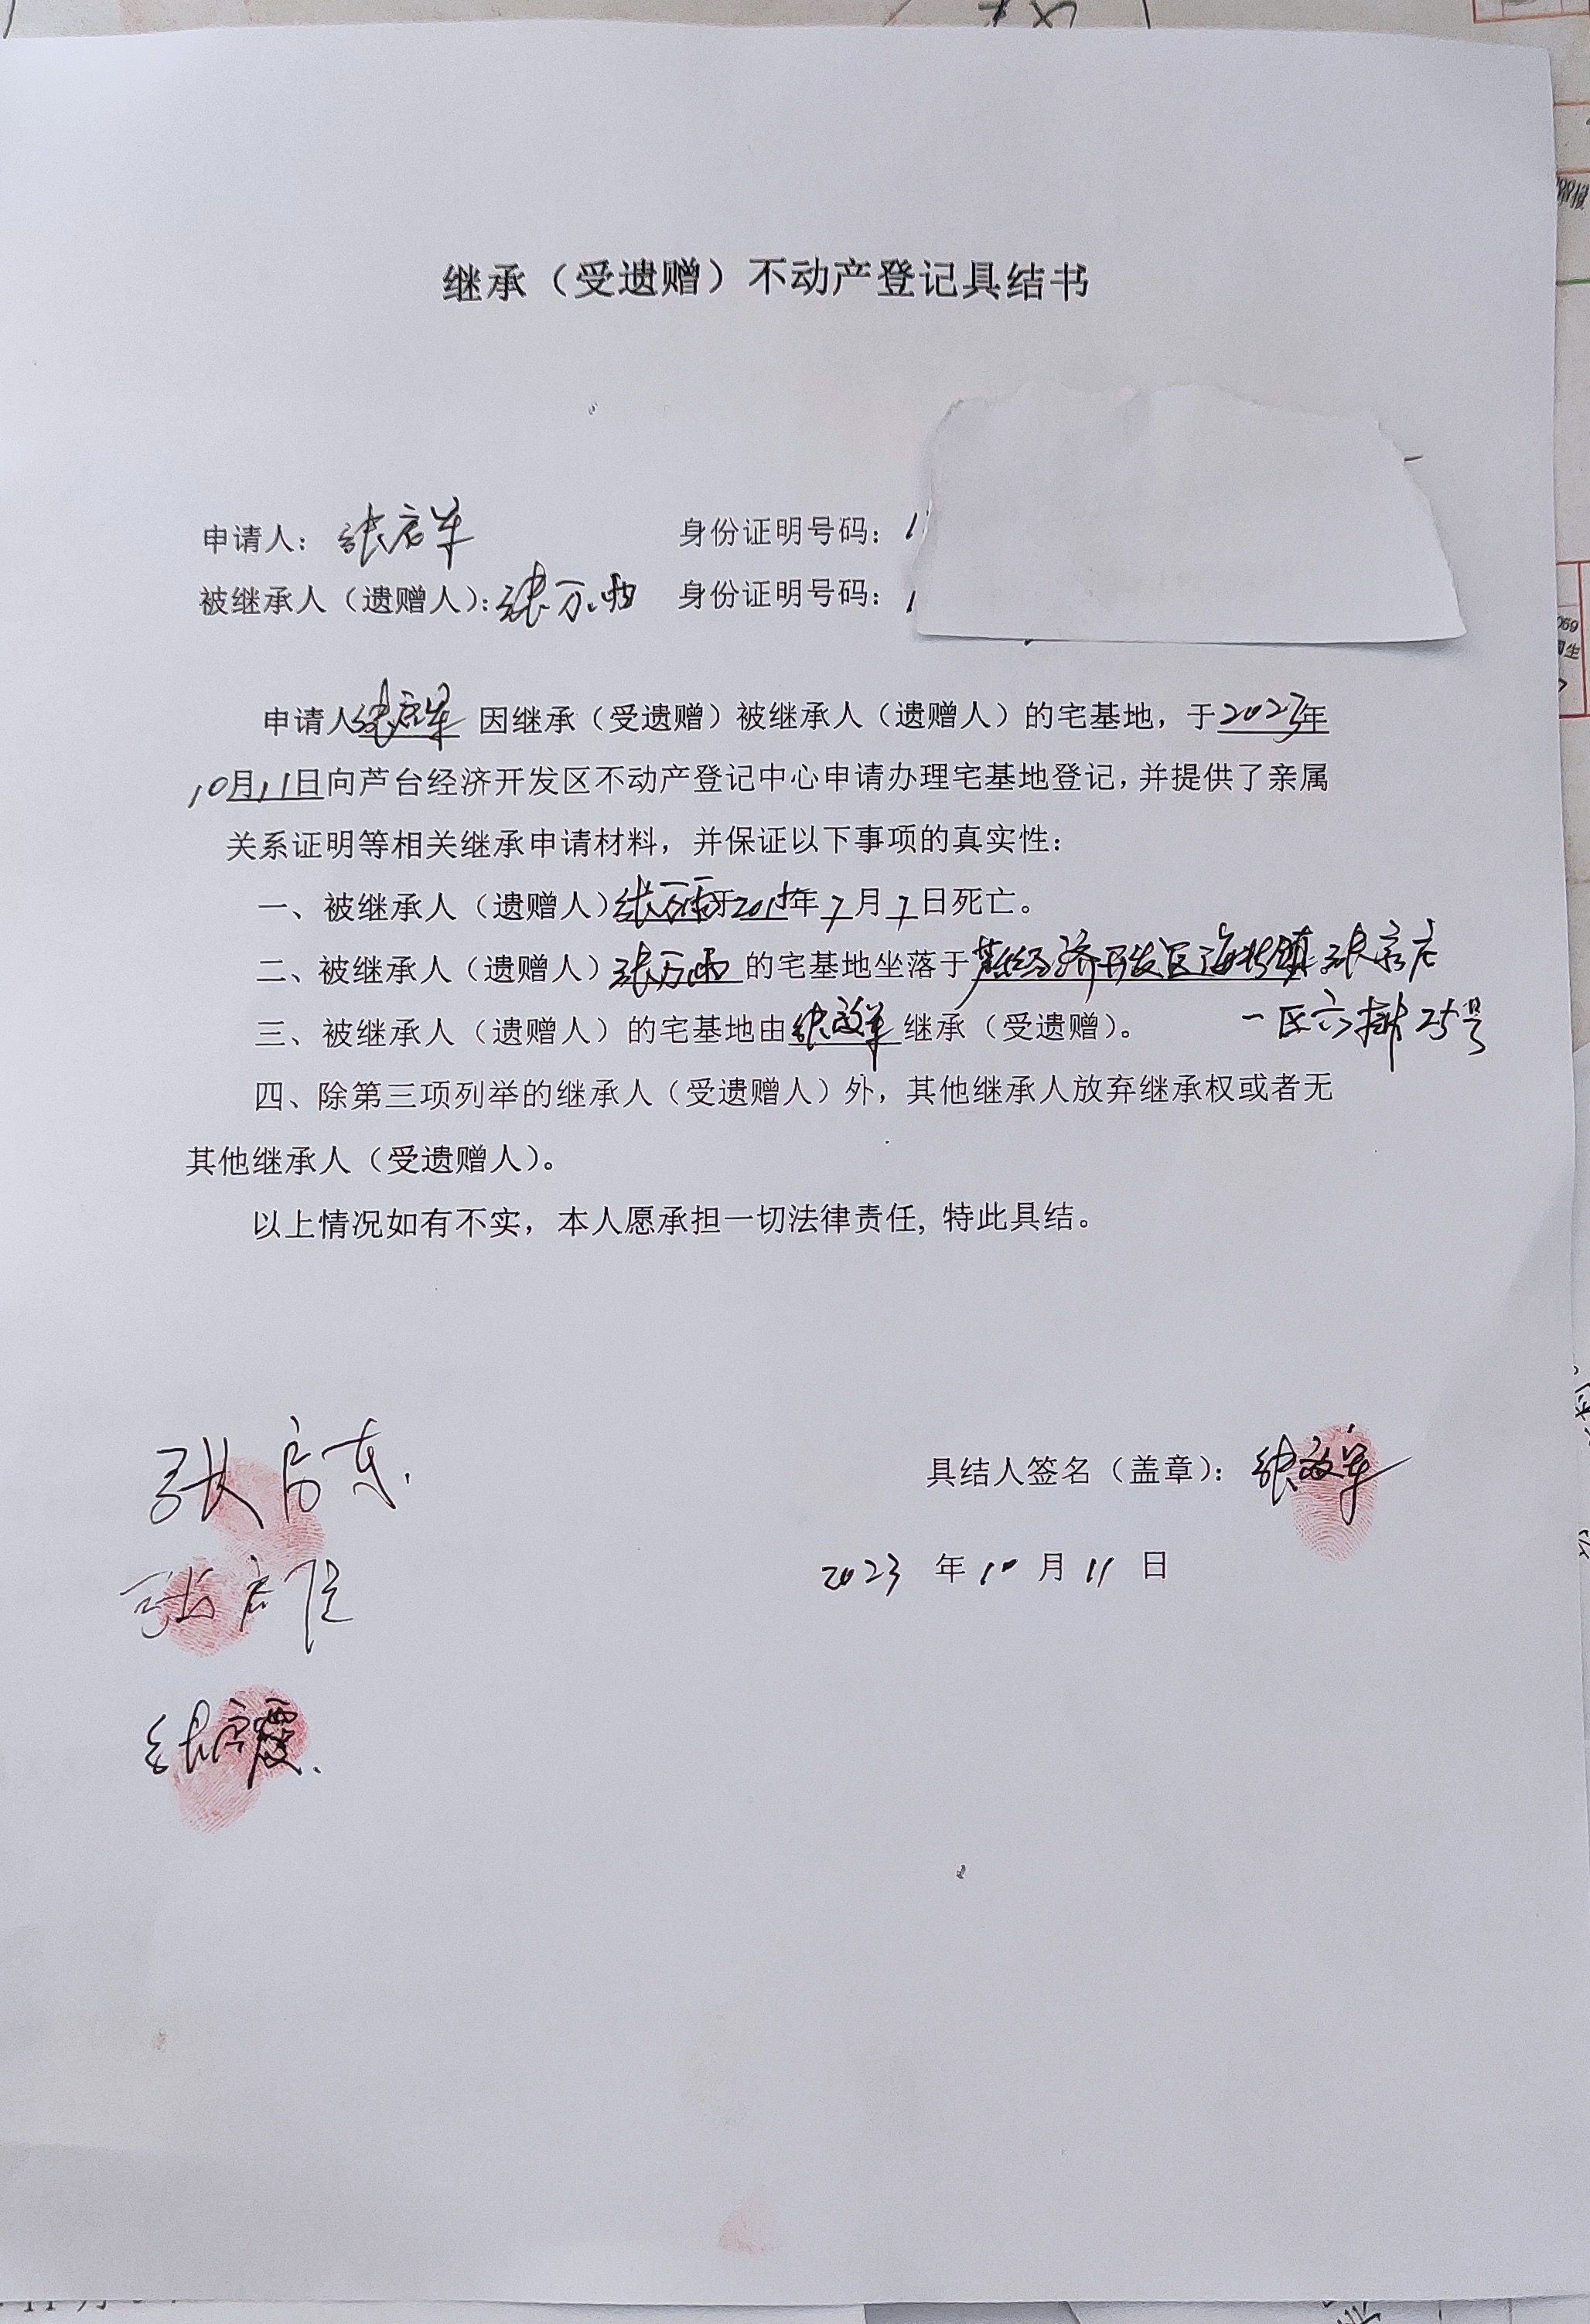 继承（受遗赠）不动产登记具结书
申请人：张启军 身份证明号码：1
被继承人（遗赠人）：张万雨 身份证明号码：1
申请人张启军因继承（受遗赠）被继承人（遗赠人）的宅基地，于2023年
10月11日向芦台经济开发区不动产登记中心申请办理宅基地登记，并提供了亲属
关系证明等相关继承申请材料，并保证以下事项的真实性：
一、被继承人（遗赠人）张万雨于年7月7日死亡。
二、被继承人（遗赠人）张万雨的宅基地坐落于芦台经济开发区海北镇张家庄
一区六排25号
三、被继承人（遗赠人）的宅基地由张启军继承（受遗赠）。
四、除第三项列举的继承人（受遗赠人）外，其他继承人放弃继承权或者无
其他继承人（受遗赠人）。
以上情况如有不实，本人愿承担一切法律责任，特此具结。
张启东
具结人签名（盖章）：张启军
2023年10月11日
张启
张启霞